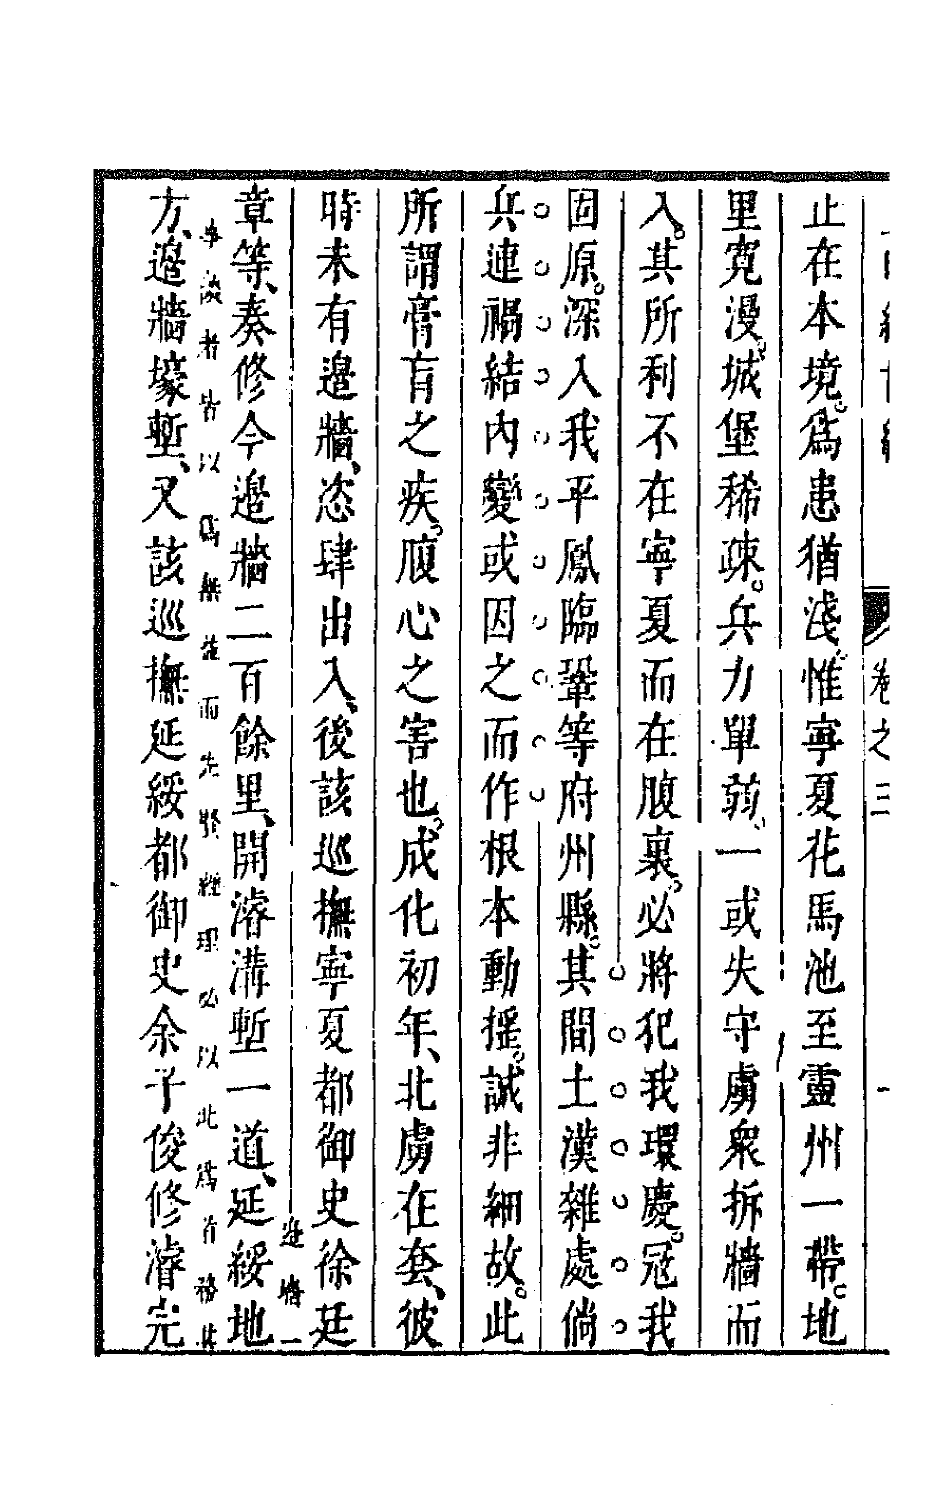 止在本境爲患猶淺惟寧夏花馬池至靈州一帶地
里寛漫城堡稀疎兵力單弱一或失守虜衆拆牆而
入其所利不在寧夏而在腹裏必將犯我環慶冦我
固原深入我平鳳臨鞏等府州縣其間土漢雜處倘
兵連禍結内變或因之而作根本動搖誠非細故此
所謂膏肓之疾腹心之害也成化初年北虜在套彼
時未有邉牆恣肆出入後該巡撫寧夏都御史徐廷
邉墻一
章等奏修今邉牆二百餘里開濬溝塹一道延綏地
者皆以爲無益而先賢經理必以此爲首務
方邉牆壕塹又該巡撫延綏都御史余子俊修濬完
卷之二